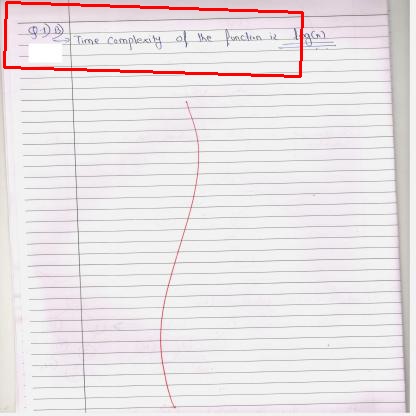 Q.1) B)
→ Time complexity of the function is log(n)